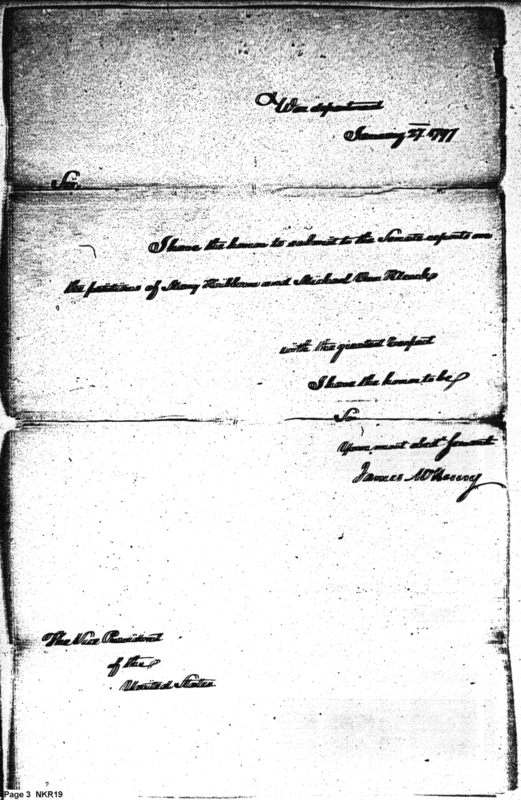 War department
January 27. 1797
Sir,
I have the honor to submit to the Senate reports on
the petitions of Mary and Michael Van
with the greatest respect
I have the honor to be
Sir
Your most obedt. Servant
James McHenry
The Vice President
of the
United States
Page 3 NKR19